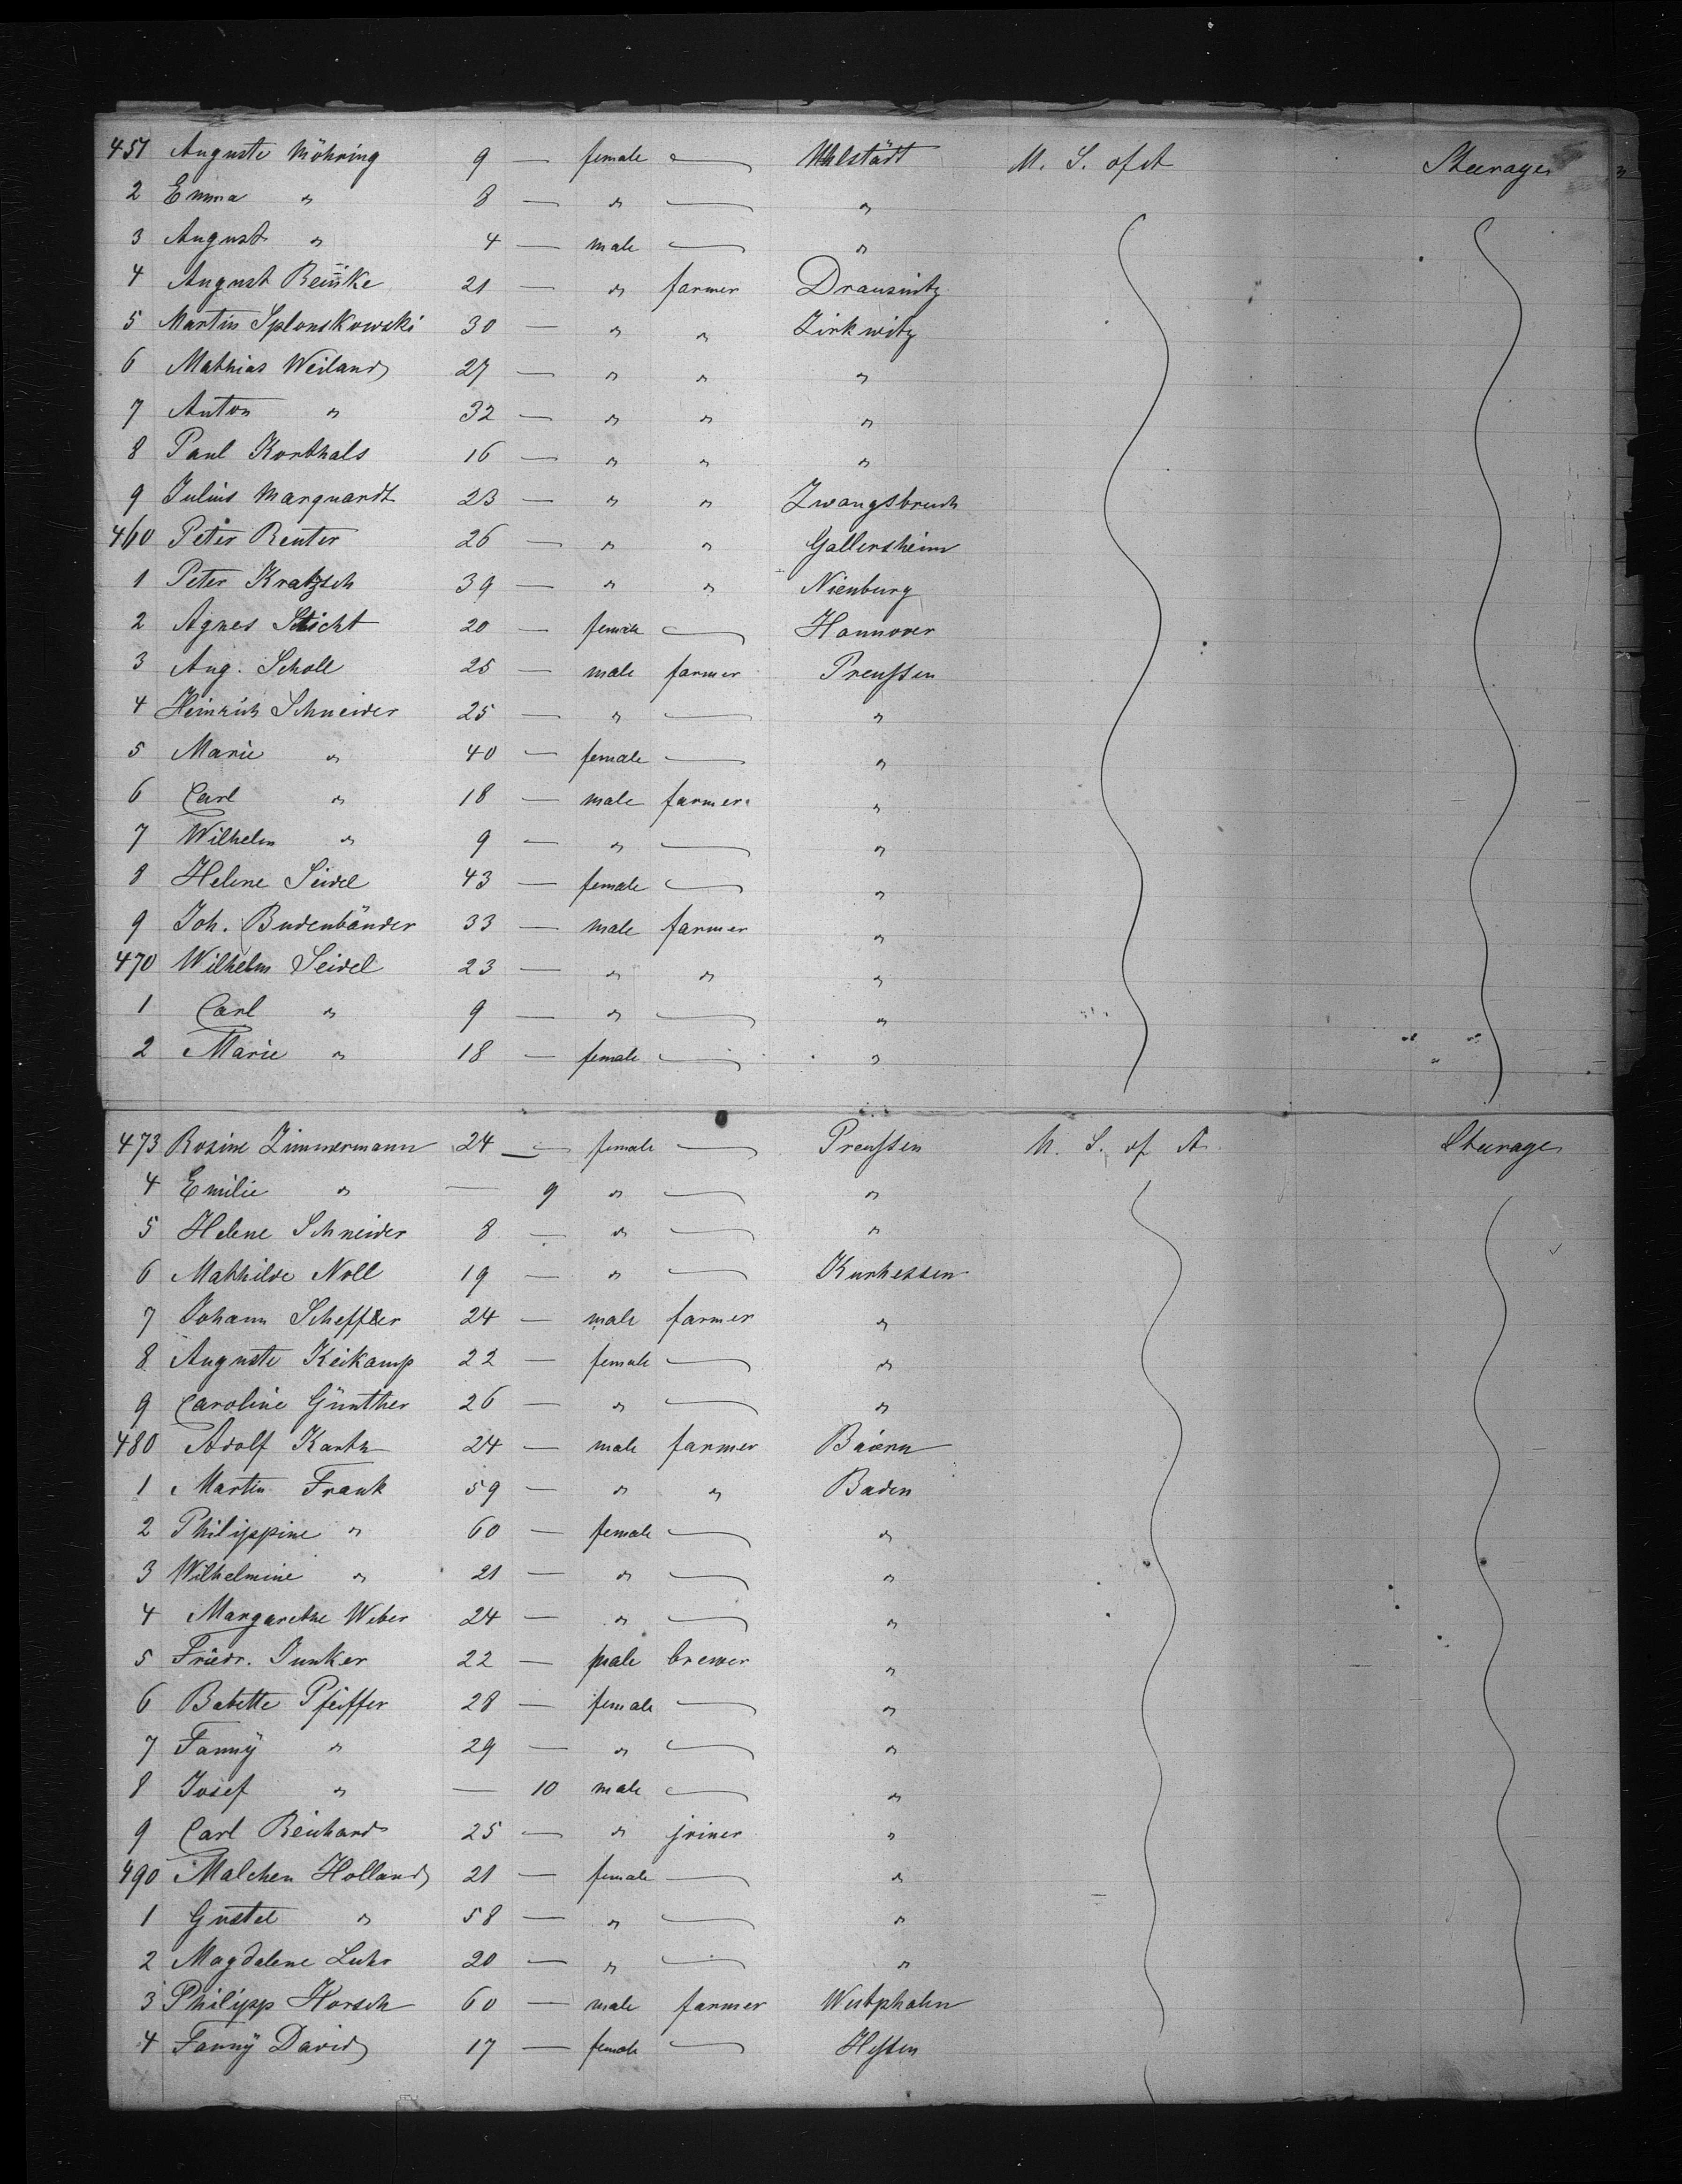 451 Auguste Möhring 9 — female — Uhlstädt U. S. of A Steerage
2 Emma " 8 — " — "
3 August " 4 — male — "
4 August Reinke 21 — " farmer Drausnitz
5 Martin Splonskowski 30 — " " Zirkwitz
6 Mathias Weiland 27 — " " "
7 Anton " 32 — " " "
8 Paul Korthals 16 — " " "
9 Julius Marquardt 23 — " " Zwangsbruch
460 Peter Reuter 26 — " " Gallersheim
1 Peter Kratzsch 39 — " " Nienburg
2 Agnes Sticht 20 — female — Hannover
3 Aug. Scholl 25 — male farmer Preussen
4 Heinrich Schneider 25 — " — "
5 Marie " 40 — female — "
6 Carl " 18 — male farmer "
7 Wilhelm " 9 — " — "
8 Helene Seidel 43 — female — "
9 Joh. Budenbänder 33 — male farmer "
470 Wilhelm Seidel 23 — " " "
1 Carl " 9 — " — "
2 Marie " 18 — female — "
473 Rosine Zimmermann 24 — female — Preussen U. S. of A. Steerage
4 Emilie " — 9 " — "
5 Helene Schneider 8 — " — "
6 Mathilde Noll 19 — " — Kurhessen
7 Johann Scheffler 24 — male farmer "
8 Auguste Keikamp 22 — female — "
9 Caroline Günther 26 — " — "
480 Adolf Karth 24 — male farmer Baiern
1 Martin Frank 59 — " " Baden
2 Philippine " 60 — female — "
3 Wilhelmine " 21 — " — "
4 Margarethe Weber 24 — " — "
5 Friedr. Junker 22 — male brewer "
6 Babette Pfeiffer 28 — female — "
7 Fanny " 29 — " — "
8 Josef " — 10 male — "
9 Carl Reichard 25 — " joiner "
490 Malchen Holland 21 — female — "
1 Gustel " 58 — " — "
2 Magdalene Luhr 20 — " — "
3 Philipp Horsch 60 — male farmer Westphalen
4 Fanny David 17 — female — Hessen